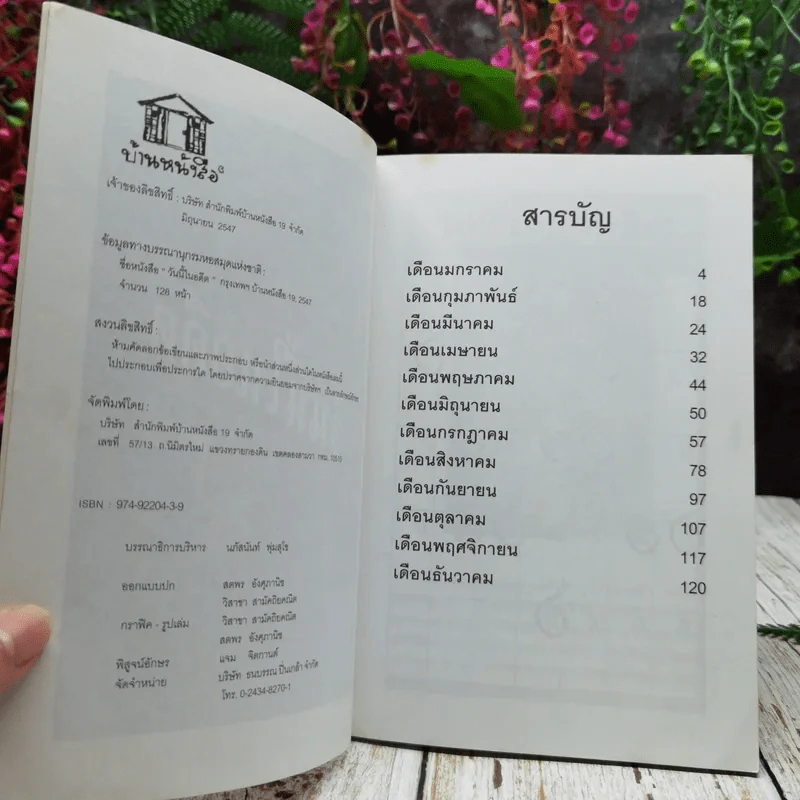 บ้านหนังสือ
เจ้าของลิขสิทธิ์ : บริษัท สำนักพิมพ์บ้านหนังสือ 19 จำกัด
มิถุนายน 2547
ข้อมูลทางบรรณานุกรมหอสมุดแห่งชาติ :
ชื่อหนังสือ " วันนี้ในอดีต " กรุงเทพฯ บ้านหนังสือ 19, 2547
จำนวน 128 หน้า
สงวนลิขสิทธิ์ :
ห้ามคัดลอกข้อเขียนและภาพประกอบ หรือนำส่วนหนึ่งส่วนใดในหนังสือเล่มนี้
ไปประกอบเพื่อประการใด โดยปราศจากความยินยอมจากบริษัทฯ เป็นลายลักษณ์อักษร
จัดพิมพ์โดย :
บริษัท สำนักพิมพ์บ้านหนังสือ 19 จำกัด
เลขที่ 57/13 ถ.นิมิตรใหม่ แขวงทรายกองดิน เขตคลองสามวา กทม.
ISBN : 974-92204-3-9
บรรณาธิการบริหาร นภัสนันท์ พุ่มสุโข
ออกแบบปก สตพร อังศุภานิช
วิสาขา สามัคถิยคณิต
กราฟิค - รูปเล่ม วิสาขา สามัคถิยคณิต
สตพร อังศุภานิช
พิสูจน์อักษร แจม จิตกานต์
จัดจำหน่าย บริษัท ธนบรรณ ปิ่นเกล้า จำกัด
โทร. 0-2434-8270-1
สารบัญ
เดือนมกราคม 4
เดือนกุมภาพันธ์ 18
เดือนมีนาคม 24
เดือนเมษายน 32
เดือนพฤษภาคม 44
เดือนมิถุนายน 50
เดือนกรกฎาคม 57
เดือนสิงหาคม 78
เดือนกันยายน 97
เดือนตุลาคม 107
เดือนพฤศจิกายน 117
เดือนธันวาคม 120